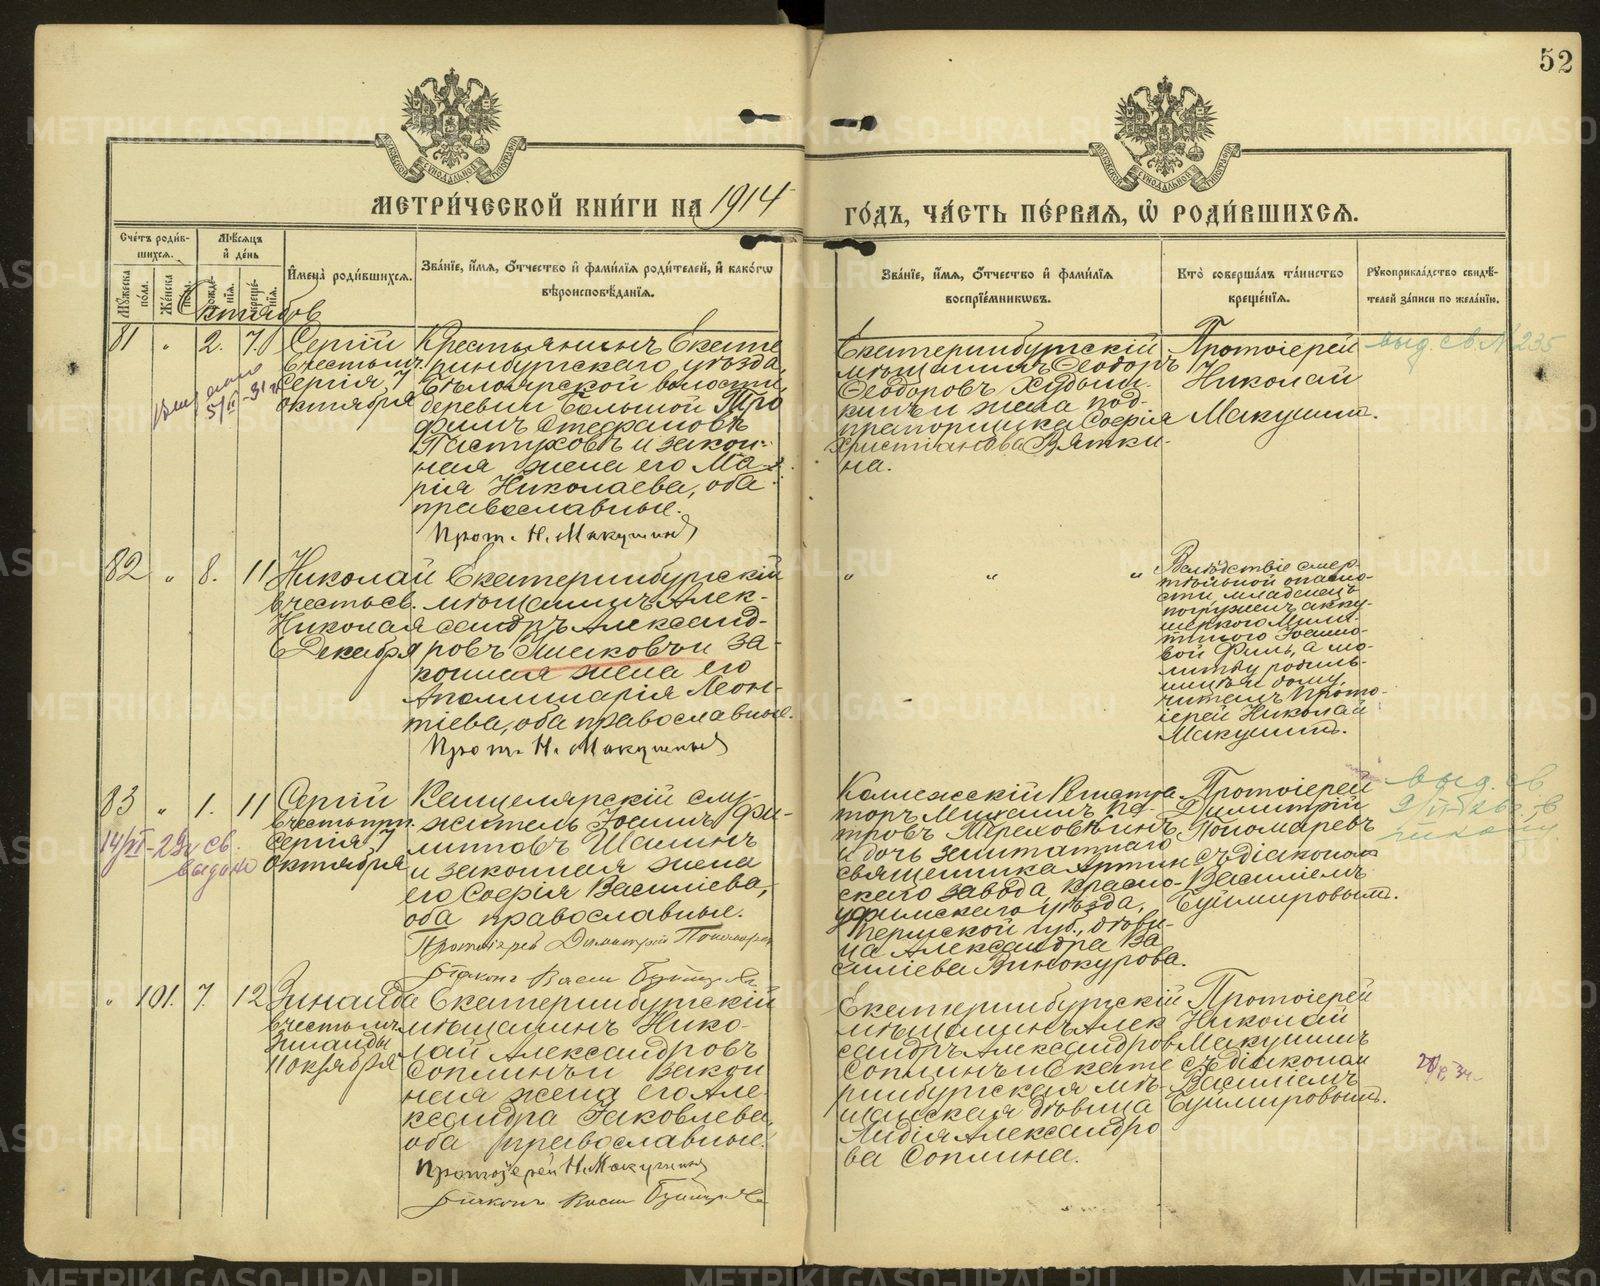 52
МЕТРИ́ЧЕСКОЙ КНИ́ГИ НА 1914
ГО́ДЪ, ЧА́СТЬ ПЕ́РВАЯ, Ѡ РОДИ́ВШИХСЯ.
Сче́тъ роди́в-
шихся.
Мѣ́сяцъ
и҆ де́нь
Мꙋ́жеска
по́ла.
Же́нска
по́ла.
рожде́-
нїя.
креще́-
нїя.
И҆мена̀ роди́вшихся.
Зва́нїе, и҆́мя, ѻ҆́тчество и҆ фами́лїя роди́телей, и҆ како́гѡ
вѣроисповѣ́данїя.
Зва́нїе, и҆́мя, ѻ҆́тчество и҆ фами́лїя
воспрїе́мникѡвъ.
Кто̀ соверша́лъ та́инство
креще́нїя.
Рꙋкоприкла́дство свидѣ́-
телей за́писи по жела́нїю.
Октябрь
81 " 2. 7.
Сергій
въ честь муч.
Сергія 7
октября
Крестьянинъ Екате
ринбургскаго уѣзда,
Бѣлоярской волости,
деревни Большой Тро
фимъ Стефановъ
Пастуховъ и закон-
ная жена его Ма-
рія Николаева, оба
православные.
Прот. Н. Макушинъ
Екатеринбургскій
мѣщанинъ Ѳеодоръ
Ѳеодоровъ
и жена под-
прапорщика Софія
Христіанова Вяткина.
Протоіерей
Николай
Макушин.
выд. св. № 235
82 " 8. 11
Николай
въ честь св.
Николая
6 Декабря
Екатеринбургскій
мѣщанинъ Алек-
сандръ Александ-
ровъ и за-
конная жена его
Аполлинарія Леон-
тіева, оба православные.
Прот. Н. Макушинъ
" " "
Вслѣдствіе смер-
тельной опасно-
сти младенецъ
погруженъ акку-
шеркою
а мо-
литву родиль-
ницѣ и дому
читалъ Прото-
іерей Николай
Макушинъ.
83 " 1. 11
Сергій
въ честь прп.
Сергія 7
октября
Канцелярскій слу-
житель Іоаннъ Фи-
липповъ Шалинъ
и законная жена
его Софія Василіева,
оба православные.
Протоіерей Димитрій Пономарев
Діаконъ Васи
Коллежскій Регистра
торъ Михаилъ Пе-
тровъ Мреховѣнинъ
и дочь заштатнаго
священника Артин
скаго завода, Красно-
уфимскаго уѣзда,
Пермской губ., дѣви-
ца Александра Ва
силіева Винокурова.
Протоіерей
Димитрій
Пономаревъ
съ діакономъ
Василіемъ
Буймировымъ.
выд. св
14/VI-29г св.
выдано
" 101. 7. 12
Зинаида
въ честь муч.
Зинаиды
11 Октября
Екатеринбургскій
мѣщанинъ Нико-
лай Александровъ
Соплинъ и закон
ная жена его Але-
ксандра Іаковлева,
оба православные.
Протоіерей Н. Макушинъ
Діаконъ Васи
Екатеринбургскій
мѣщанинъ Алек
сандръ Александров
Соплинъ и Екате
ринбургская мѣ-
щанская дѣвица
Лидія Александро
ва Соплина.
Протоіерей
Николай
Макушинъ
съ діаконом
Василіемъ
Буймировымъ.
METRIKI.GASO-URAL.RU